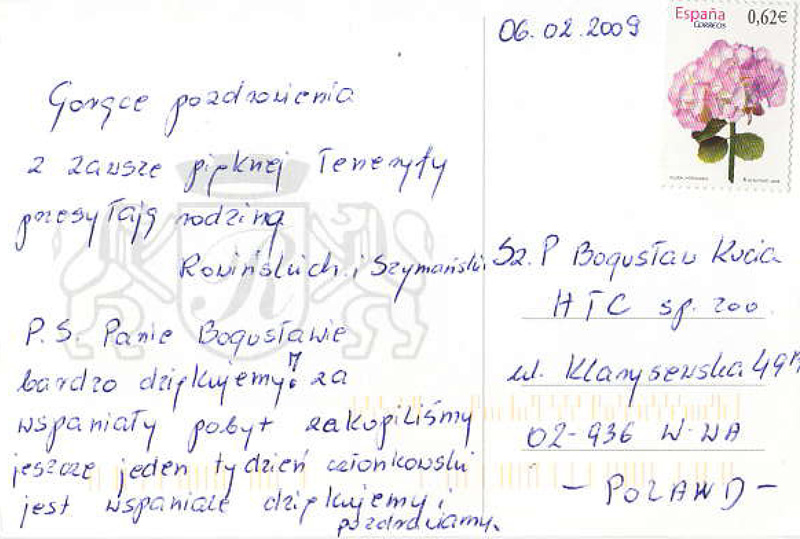 06.02.2009
España
CORREOS
0,62€
Gorące pozdrowienia
z zawsze pięknej Teneryfy
przesyłają rodziną
Rowińskich i Szymański
P.S. Panie Bogusławie
bardzo dziękujemy! za
wspaniały pobyt zakupiliśmy
jeszcze jeden tydzień członkowski
jest wspaniale dziękujemy i
pozdrawiamy.
Sz. P Bogusław Kucia
HTC sp. zoo.
ul. Klarysewska 49
02-936 W-WA
- POLAND -